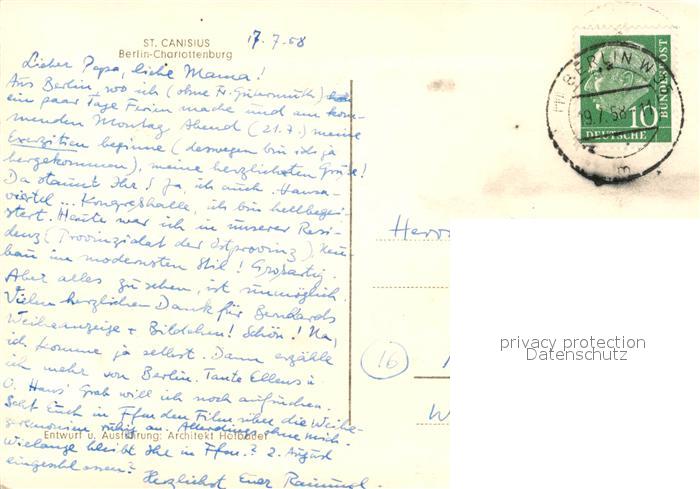 ST. CANISIUS
Berlin-Charlottenburg
17.7.58
Lieber Papa, liebe Mama!
Aus Berlin, wo ich (ohne Fr. Gutermuth)
ein paar Tage Ferien mache und am kom-
menden Montag Abend (21.7.) meine
Exerzitien beginne (deswegen bin ich ja
hergekommen), meine herzlichsten Grüße!
Da staunt Ihr! Ja, ich auch. Hansa-
viertel ... Kongreßhalle, ich bin hellbegei-
stert. Heute war ich in unserer Resi-
denz (Provinzialat der Ostprovinz), Neu-
bau im modernsten Stil! Großartig.
Aber alles zu sehen, ist unmöglich.
Vielen herzlichen Dank für Bernhards
Weiheanzeige + Bildchen! Schön! Na,
ich komme ja selbst. Dann erzähle
ich mehr von Berlin. Tante Ellens u.
O. Hans' Grab will ich noch aufsuchen.
Seht Euch in Ffm den Film über die Weihe-
zeremonien ruhig an. Allerdings ohne mich.
Entwurf u. Ausführung: Architekt Hofbauer
Wielange bleibt Ihr in Ffm.? 2. August
eingeschlossen?
Herzlichst Euer
BERLIN
19.7.58
10
DEUTSCHE
BUNDESPOST
Herrn
16
W
privacy protection
Datenschutz